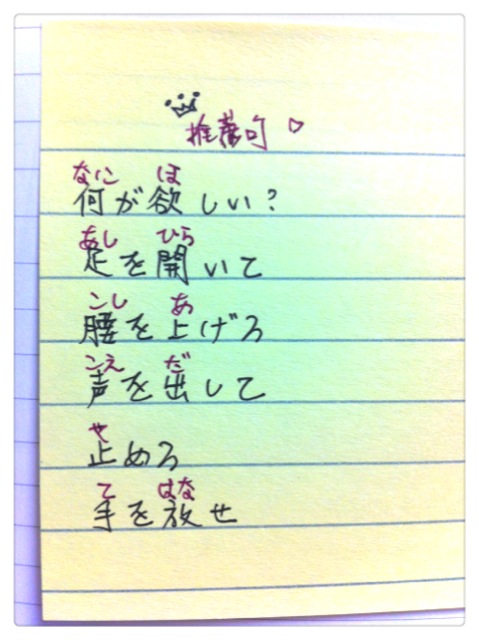 推薦句♡
なに ほ
何が欲しい?
あし ひら
足を開いて
こし あ
腰を上げろ
こえ だ
声を出して
や
止めろ
て はな
手を放せ